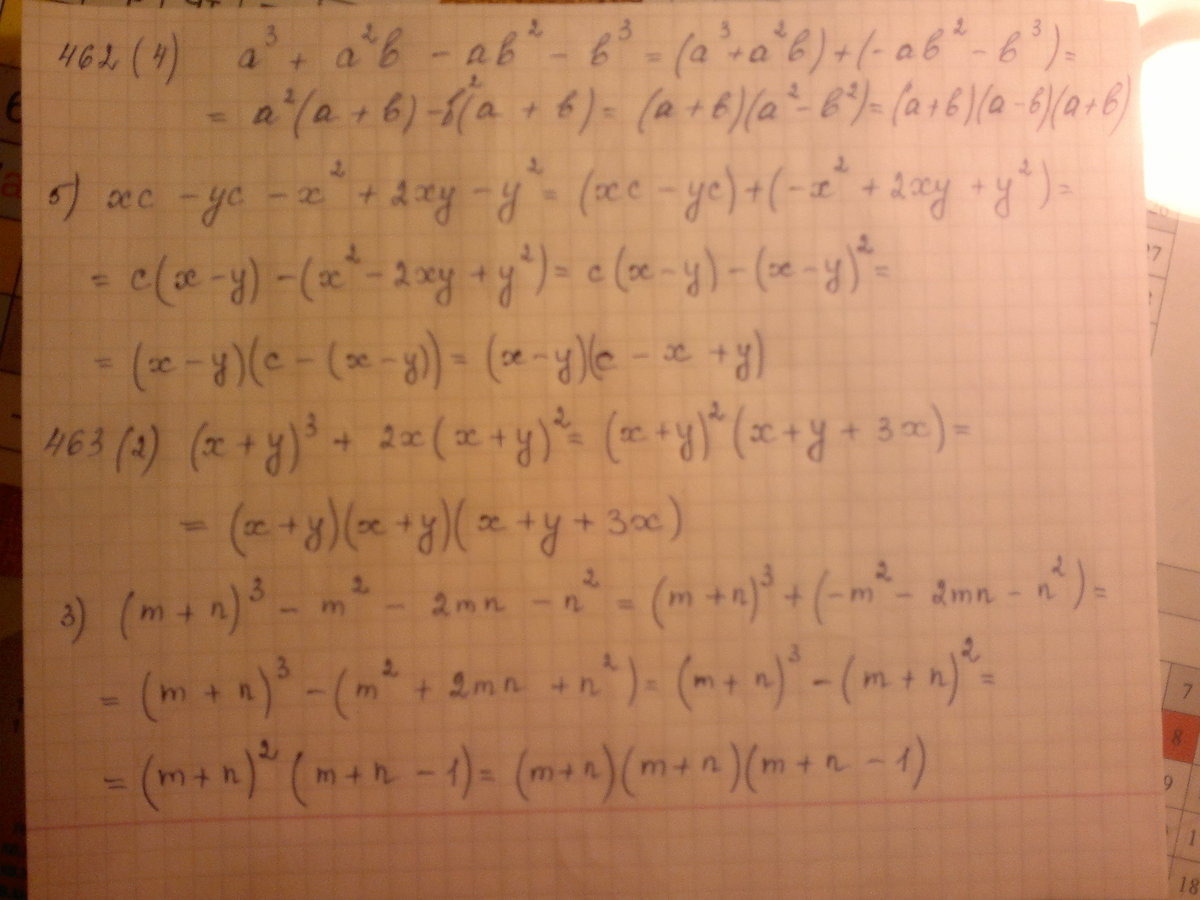 462 (4) a³ + a²b - ab² - b³ = (a³ + a²b) + (-ab² - b³) =
= a²(a + b) - b²(a + b) = (a + b)(a² - b²) = (a+b)(a-b)(a+b)
5) xc - yc - x² + 2xy - y² = (xc - yc) + (-x² + 2xy + y²) =
= c(x - y) - (x² - 2xy + y²) = c(x - y) - (x - y)² =
= (x - y)(c - (x - y)) = (x - y)(c - x + y)
463 (2) (x + y)³ + 2x(x + y)² = (x + y)²(x + y + 3x) =
= (x + y)(x + y)(x + y + 3x)
3) (m + n)³ - m² - 2mn - n² = (m + n)³ + (-m² - 2mn - n²) =
= (m + n)³ - (m² + 2mn + n²) = (m + n)³ - (m + n)² =
= (m + n)² (m + n - 1) = (m + n)(m + n)(m + n - 1)
27
7
8
9
1
18